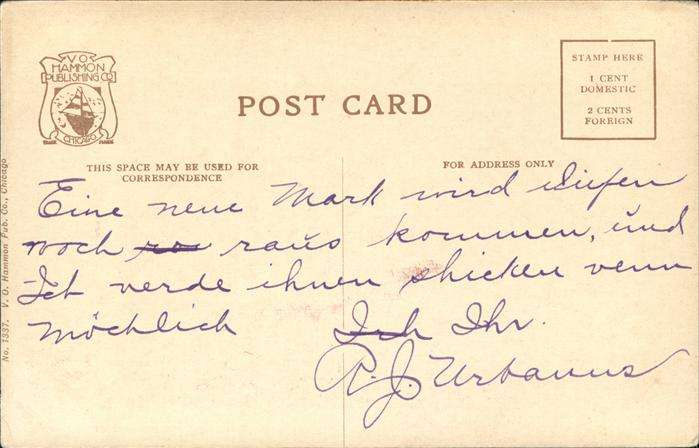 V. O.
HAMMON
PUBLISHING CO.
CHICAGO
TRADE MARK
POST CARD
STAMP HERE
1 CENT
DOMESTIC
2 CENTS
FOREIGN
THIS SPACE MAY BE USED FOR
CORRESPONDENCE
FOR ADDRESS ONLY
No. 1337. V. O. Hammon Pub. Co., Chicago
Eine neue Mark wird
noch raus kommen, und
Ich verde ihnen shicken venn
möchlich Ihr.
R. J. Urbanus